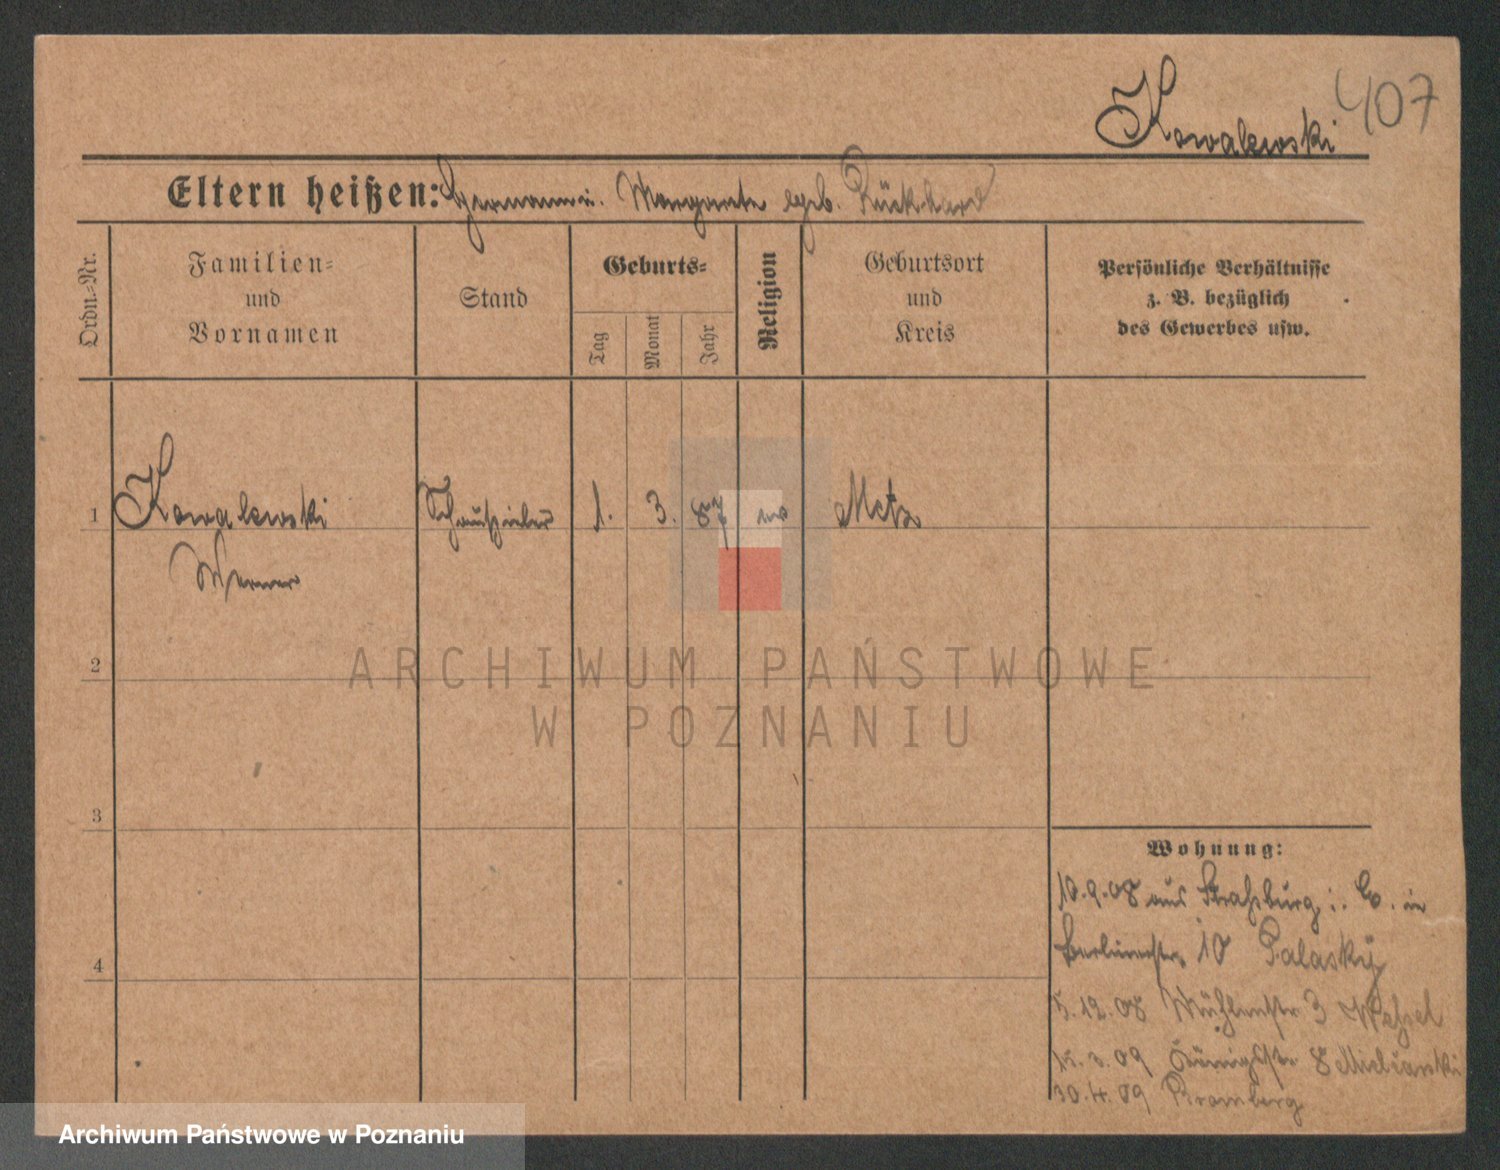 Kowalewski 407
Eltern heißen: Hermann u. Margarete geb. Rückhard
Ordn.-Nr.
Familien-
und
Vornamen
Stand
Geburts-
Tag
Monat
Jahr
Religion
Geburtsort
und
Kreis
Persönliche Verhältnisse
z. B. bezüglich
des Gewerbes usw.
1 Kowalewski Schauspieler 1. 3. 87 Metz
Werner
2
3
4
ARCHIWUM PAŃSTWOWE
W POZNANIU
Wohnung:
10.9.08 aus Straßburg i. E. in
Berlinerstr. 10 Palasky
5.12.08 Mühlenstr 3
15.3.09 Königstr 8
30.4.09 Bromberg
Archiwum Państwowe w Poznaniu